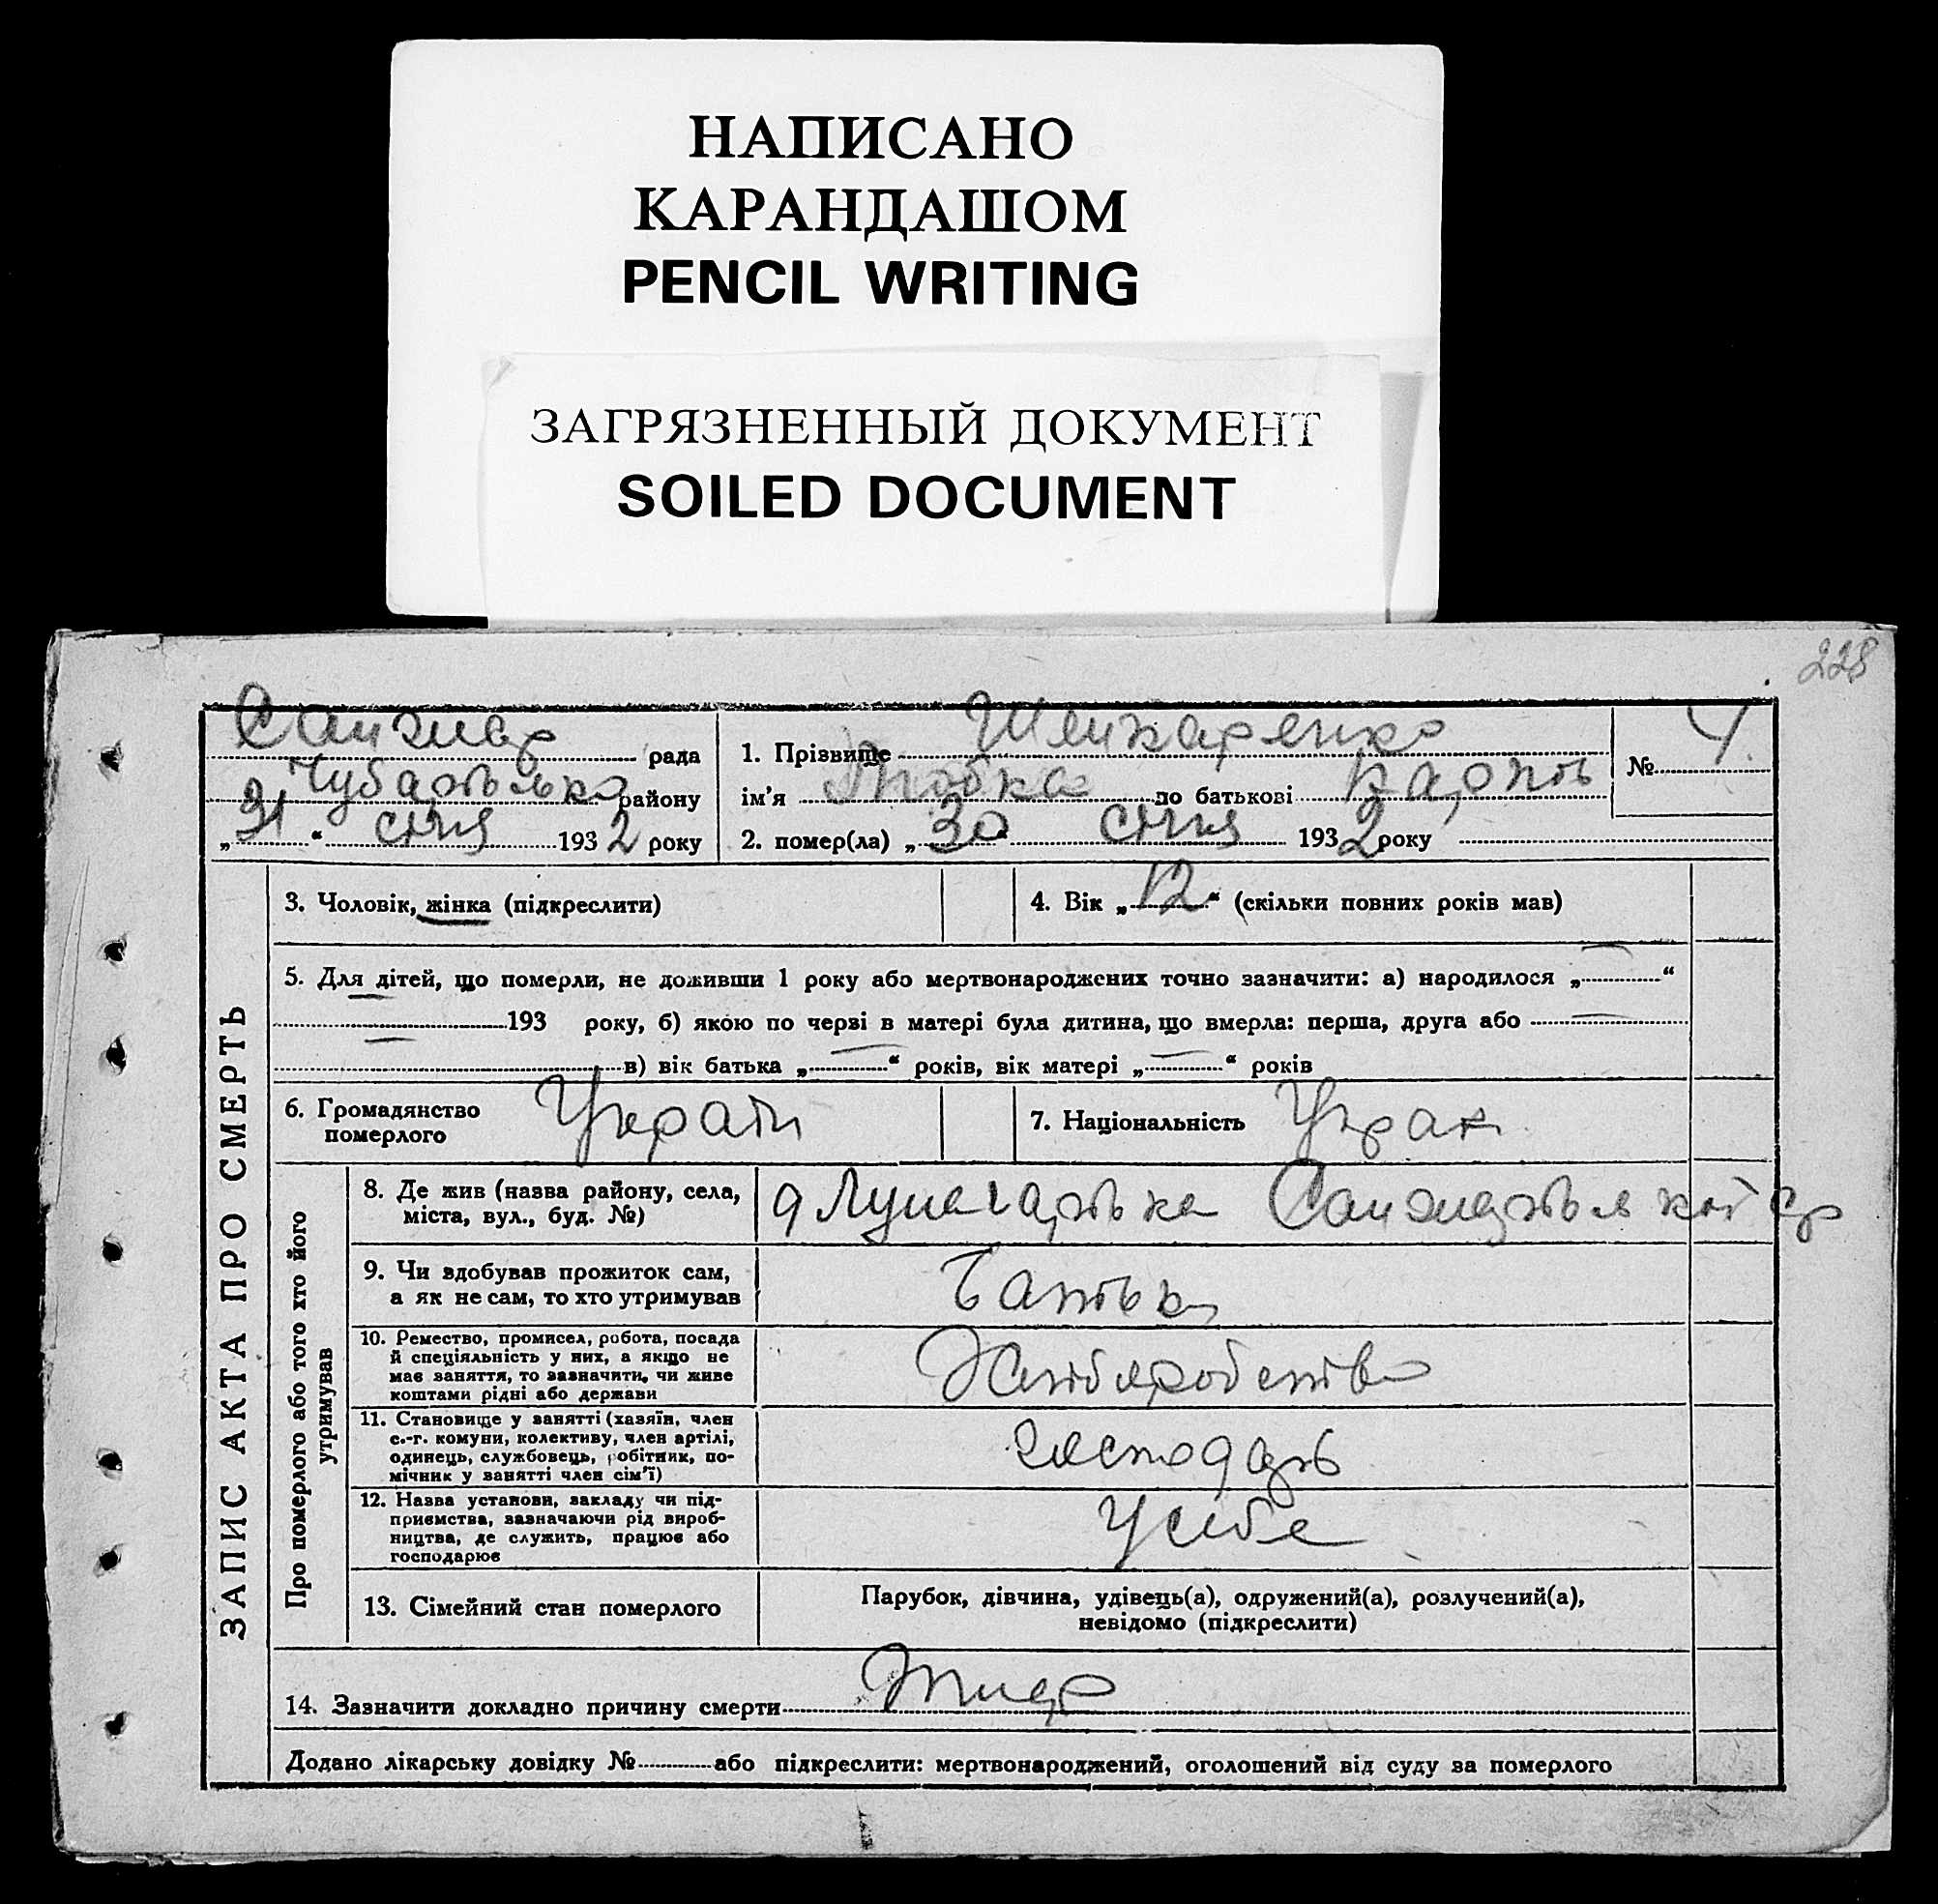 НАПИСАНО
КАРАНДАШОМ
PENCIL WRITING
ЗАГРЯЗНЕННЫЙ ДОКУМЕНТ
SOILED DOCUMENT
228
рада
району
„31“ січня 1932 року
1. Прізвище Шенкаренко
ім'я по батькові Карпов
№ 4
2. помер(ла) „30“ січня 1932 року
ЗАПИС АКТА ПРО СМЕРТЬ
3. Чоловік, жінка (підкреслити)
4. Вік „12“ (скільки повних років мав)
5. Для дітей, що померли, не доживши 1 року або мертвонароджених точно зазначити: а) народилося „ “
193 року, б) якою по черзі в матері була дитина, що вмерла: перша, друга або
в) вік батька „ “ років, вік матері „ “ років
6. Громадянство
померлого
7. Національність
Про померлого або того хто його
утримував
8. Де жив (назва району, села,
міста, вул., буд. №)
9. Чи здобував прожиток сам,
а як не сам, то хто утримував
Батько
10. Ремество, промисел, робота, посада
й спеціяльність у них, а якщо не
має заняття, то зазначити, чи живе
коштами рідні або держави
Хліборобство
11. Становище у занятті (хазяїн, член
с.-г. комуни, колективу, член артілі,
одинець, службовець, робітник, по-
мічник у занятті член сім'ї)
господарь
12. Назва установи, закладу чи під-
приємства, зазначаючи рід вироб-
ництва, де служить, працює або
господарює
У себе
13. Сімейний стан померлого
Парубок, дівчина, удівець(а), одружений(а), розлучений(а),
невідомо (підкреслити)
14. Зазначити докладно причину смерти
Додано лікарську довідку № або підкреслити: мертвонароджений, оголошений від суду за померлого